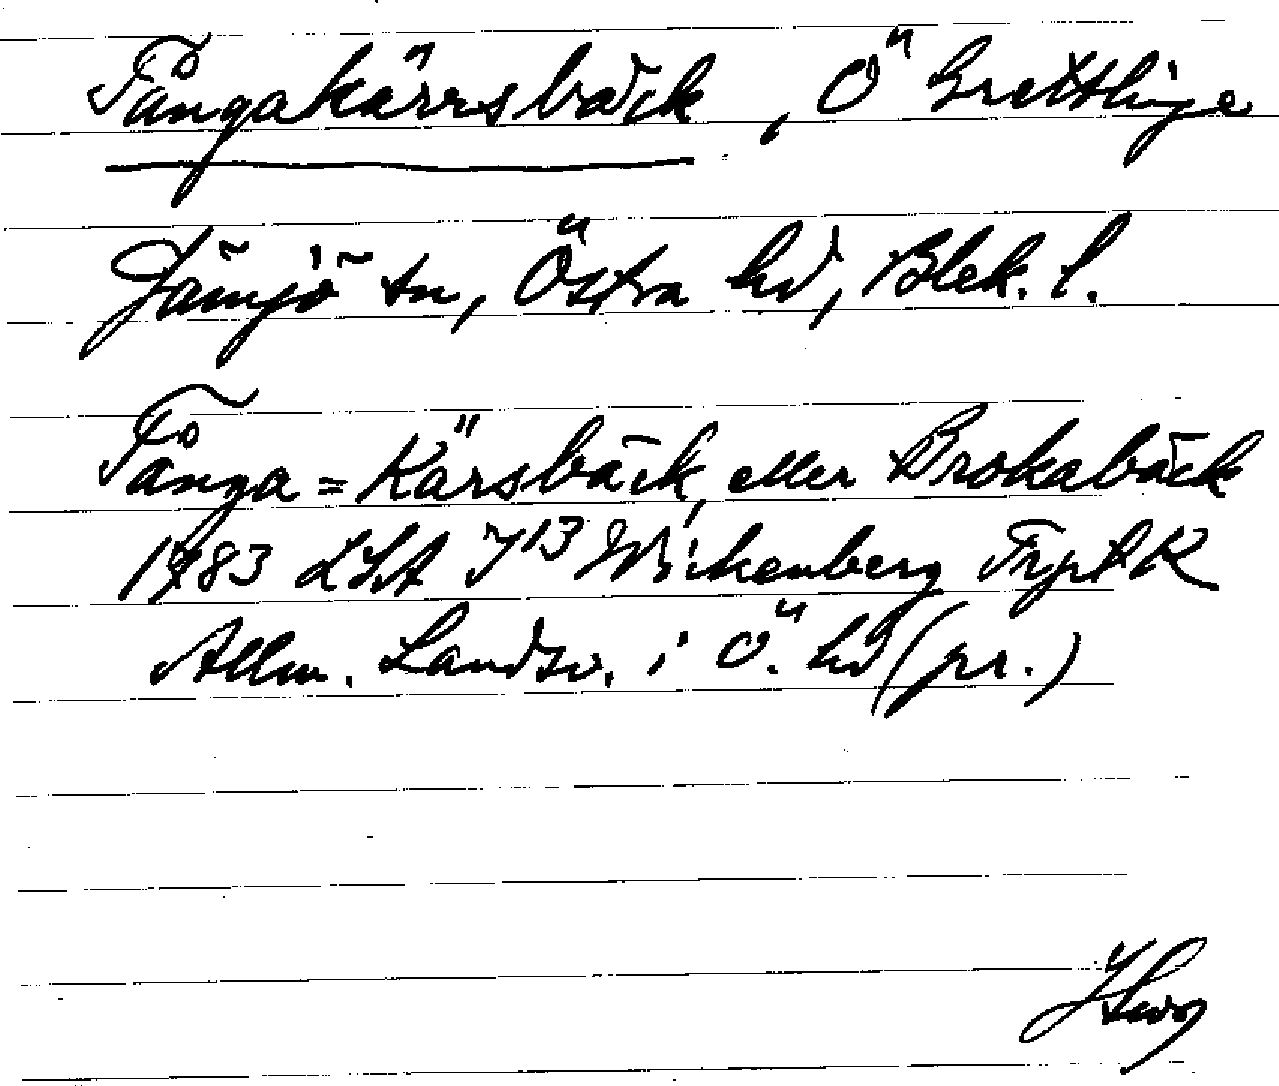 Tångakärrsbäck, Ö Grettlinge
Jämjö sn, Östra hd, Blek. l.
Tånga=Kärsbäck, eller Brokabäck
1783 LSA J13 Wickenberg FrptK
Allm. Landsv. i Ö. hd (pr.)